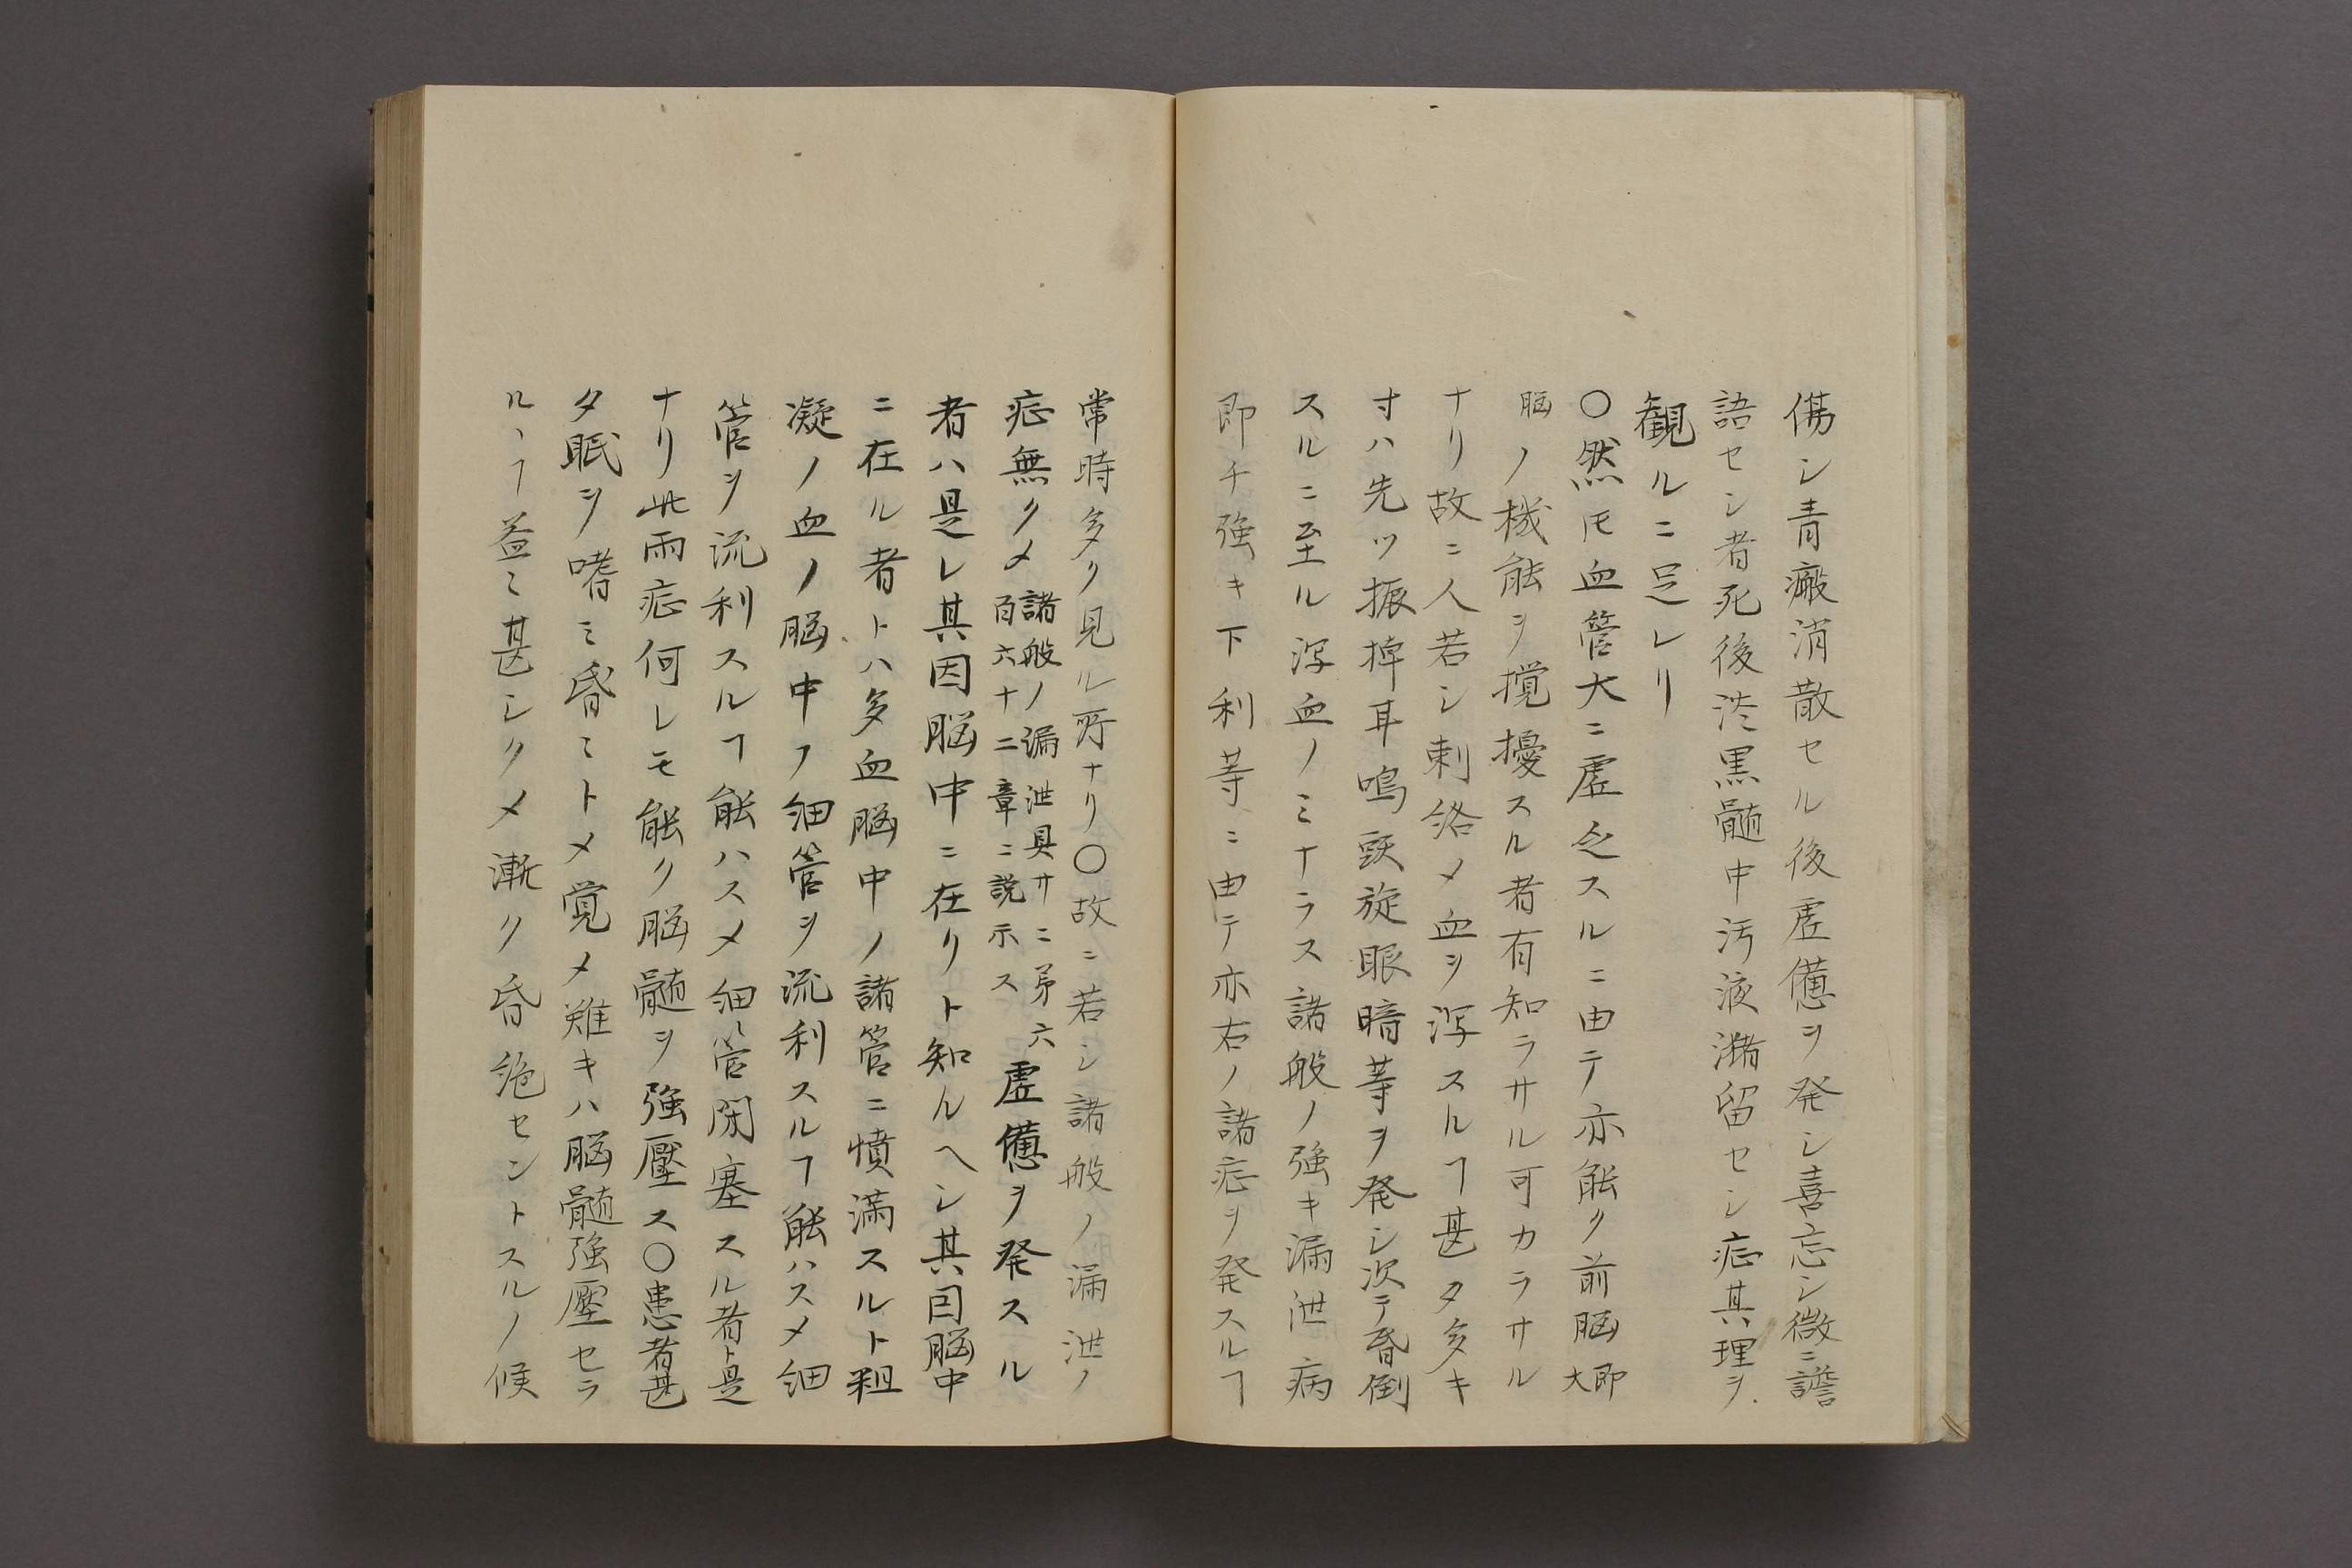 傷シ青癜消散セル後虚憊ヲ発シ喜忘シ微ニ譫
語セシ者死後淡黒髄中汚液瀦留セシ症其理ヲ
観ルニ足レリ
〇然𪜈血管大ニ虚乏スルニ由テ亦能ク前脳即大
脳ノ機能ヲ撹擾スル者有知ラサル可カラサル
ナリ故ニ人若シ刺絡〆血ヲ瀉スルヿ甚タ多キ
寸ハ先ツ振掉耳鳴頭旋眼暗等ヲ発シ次テ昏倒
スルニ至ル瀉血ノミナラス諸般ノ強キ漏泄病
即チ強キ下利等ニ由テ亦右ノ諸症ヲ発スルヿ
常時多ク見ル所ナリ〇故ニ若シ諸般ノ漏泄ノ
症無ク〆諸般ノ漏泄具サニ第六百六十二章ニ説示ス虚憊ヲ発スル
者ハ是レ其因脳中ニ在リト知ルヘシ其因脳中
ニ在ル者トハ多血脳中ノ諸管ニ憤満スルト粗
凝ノ血ノ脳中ノ細管ヲ流利スルヿ能ハス〆細
管ヲ流利スルヿ能ハス〆細管閉塞スル者ト是
ナリ此両症何レモ能ク脳髄ヲ強壓ス〇患者甚
タ眠ヲ嗜ミ昏ミト〆覚メ難キハ脳髄強壓セラ
ルヽヿ益ミ甚シク〆漸ク昏絶セントスルノ候